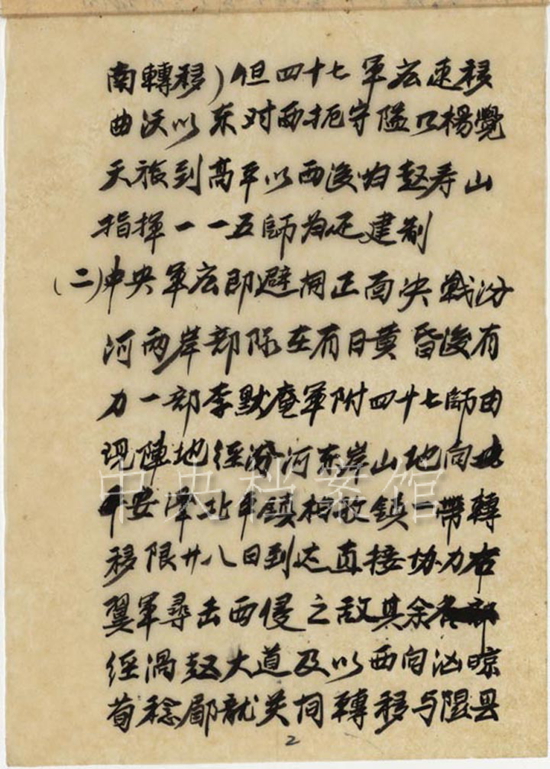 南轉移)但四十七軍应速移
曲沃以东对西扼守隘口楊覺
天旅到高平以西後归赵寿山
指揮一一五師为正建制
(二)中央軍应即避開正面決戰汾
河兩岸部隊在有日黄昏後有
力一部李默庵軍附四十七師由
现陣地经汾河东岸山地向
安澤北平鎮柏敬鎖一帶轉
移限廿八日到达直接协力右
翼軍尋击西侵之敌其余
经渦赵大道及以西向汹
鄙就关间轉移与隰县
2
中央档案馆